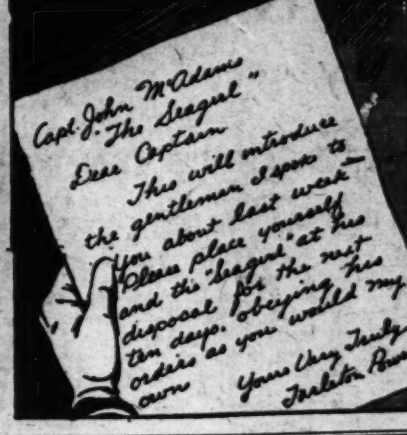 Capt. John McAdams
"The Seagirl"
Dear Captain
This will introduce
the gentleman I spoke to
you about last week—
Please place yourself
and the "Seagirl" at his
disposal for the next
ten days. obeying his
orders as you would my
own
Yours Very Truly
Tarleton Powe